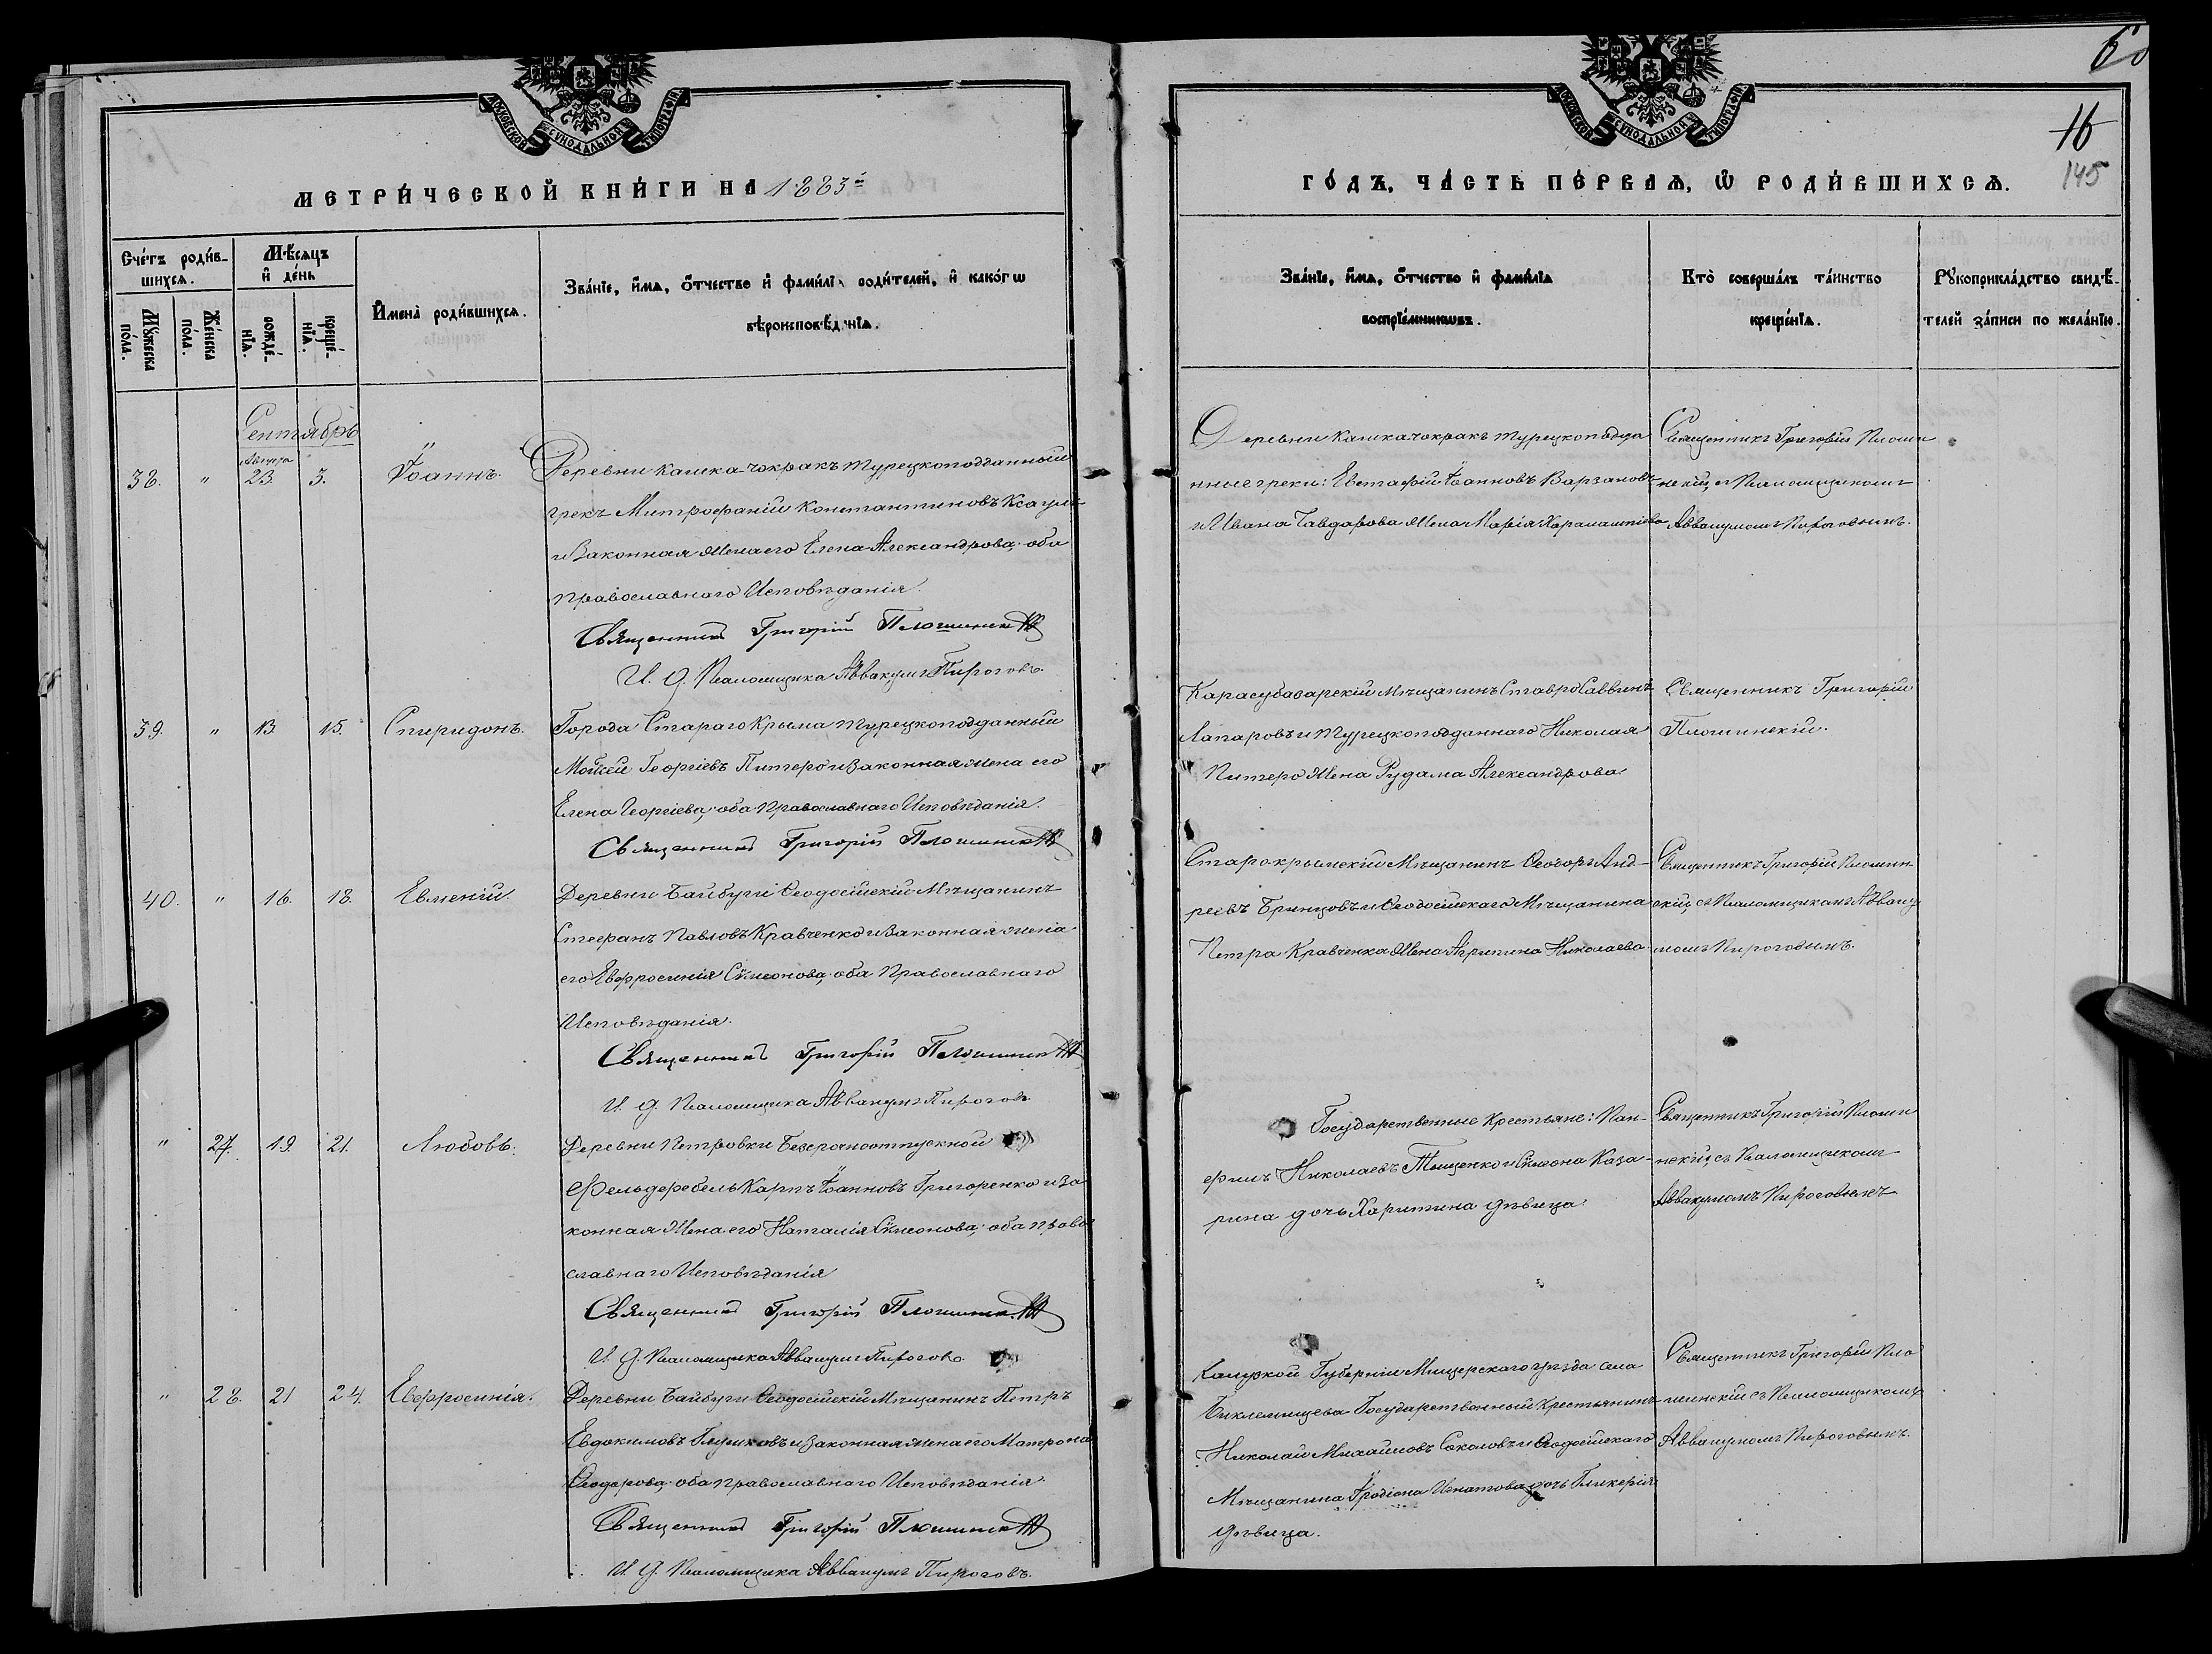 МОСКОВСКОЙ СѴНОДАЛЬНОЙ ТИПОГРАФІИ
МЕТРИ́ЧЕСКОЙ КНИ́ГИ НА 1883й
Сче́тъ роди́в-
шихся.
Мѣ́сяцъ
и҆ де́нь
Мꙋ́жеска
по́ла.
Же́нска
по́ла.
рожде́-
нїѧ.
креще́-
нїѧ.
И҆мена̀ роди́вшихся.
Зва́нїе, и҆́мѧ, ѻ҆́тчество и҆ фами́лїѧ роди́телей, и҆ како́гѡ
вѣроисповѣ́данїѧ.
Сентябрь
Августа
38. " 23. 3. Іоаннъ. Деревни Кашка-чокракъ Турецкоподданный
грекъ Митрофаній Константиновъ
и Законная Жена его Елена Александрова, оба
Православнаго Исповѣданія.
Священникъ Григорій Плошинскій
И. д. Псаломщика Аввакумъ Пироговъ.
39. " 13. 15. Спиридонъ. Города Стараго Крыма Турецкоподданный
Мойсей Георгіевъ Питеро и Законная жена его
Елена Георгіева, оба Православнаго Исповѣданія.
Священникъ Григорій Плошинскій
40. " 16. 18. Евменій. Деревни Байбуги Ѳеодосійскій Мѣщанинъ
Стефанъ Павловъ Кравченко и Законная жена
его Евфросинія Сѵмеонова, оба Православнаго
Исповѣданія.
Священникъ Григорій Плошинскій
И. д. Псаломщика Аввакумъ Пироговъ
" 27. 19. 21. Любовь. Деревни Петровки Безсрочноотпускной
Фельдфебель Карпъ Іоанновъ Григоренко и За
конная Жена его Наталія Сѵмеонова, оба Право
славнаго Исповѣданія
Священникъ Григорій Плошинскій
И. д. Псаломщика Аввакумъ Пироговъ
" 28. 21 24. Евфросинія. Деревни Байбуги Ѳеодосійскій Мѣщанинъ Петръ
Евдокимовъ Глушковъ и Законная жена его Матрона
Ѳеодорова, оба православнаго Исповѣданія.
Священникъ Григорій Плошинскій
И. д. Псаломщика Аввакумъ Пироговъ.
МОСКОВСКОЙ СѴНОДАЛЬНОЙ ТИПОГРАФІИ
16
145
ГО́ДЪ, ЧА́СТЬ ПЕ́РВАѦ, Ѡ҆ РОДИ́ВШИХСѦ.
Зва́нїе, и҆́мѧ, ѻ҆́тчество и҆ фами́лїѧ
воспрїе́мникѡвъ.
Кто̀ соверша́лъ та́инство
креще́нїѧ.
Рꙋкоприкла́дство свидѣ́-
телей за́писи по жела́нїю.
Деревни Кашка-чокракъ Турецкоподда
нные греки: Евстафій Іоанновъ Варзановъ
и Ивана Чавдарова Жена Марія Харлампіева
Священникъ Григорій Плоши
нскій, съ Псаломщикомъ
Аввакумомъ Пироговымъ.
Карасубазарскій Мѣщанинъ Ставро Саввинъ
Лапаровъ и Турецкоподданнаго Николая
Питеро Жена Рудама Александрова
Священникъ Григорій
Плошинскій.
Старокрымскій Мѣщанинъ Ѳеодоръ Анд-
реевъ Бринцовъ и Ѳеодосійскаго Мѣщанина
Петра Кравченка Жена Агрипина Николаева
Священникъ Григорій Плошин
скій, съ Псаломщикомъ Авваку
момъ Пироговымъ.
Государственные Крестьяне: Пан-
филъ Николаевъ Тыщенко и Сѵмеона Каза-
рина дочь Харитина дѣвица.
Священникъ Григорій Плоши
нскій, съ Псаломщикомъ
Аввакумомъ Пироговымъ
Калужской Губерніи Мещерскаго уѣзда села
Беклемищева Государственный Крестьянинъ
Николай Михаиловъ Соколовъ и Ѳеодосійскаго
Мѣщанина Іродіона Игнатова дочь Гликерія
дѣвица.
Священникъ Григорій Пло
шинскій съ Псаломщикомъ
Аввакумомъ Пироговымъ.